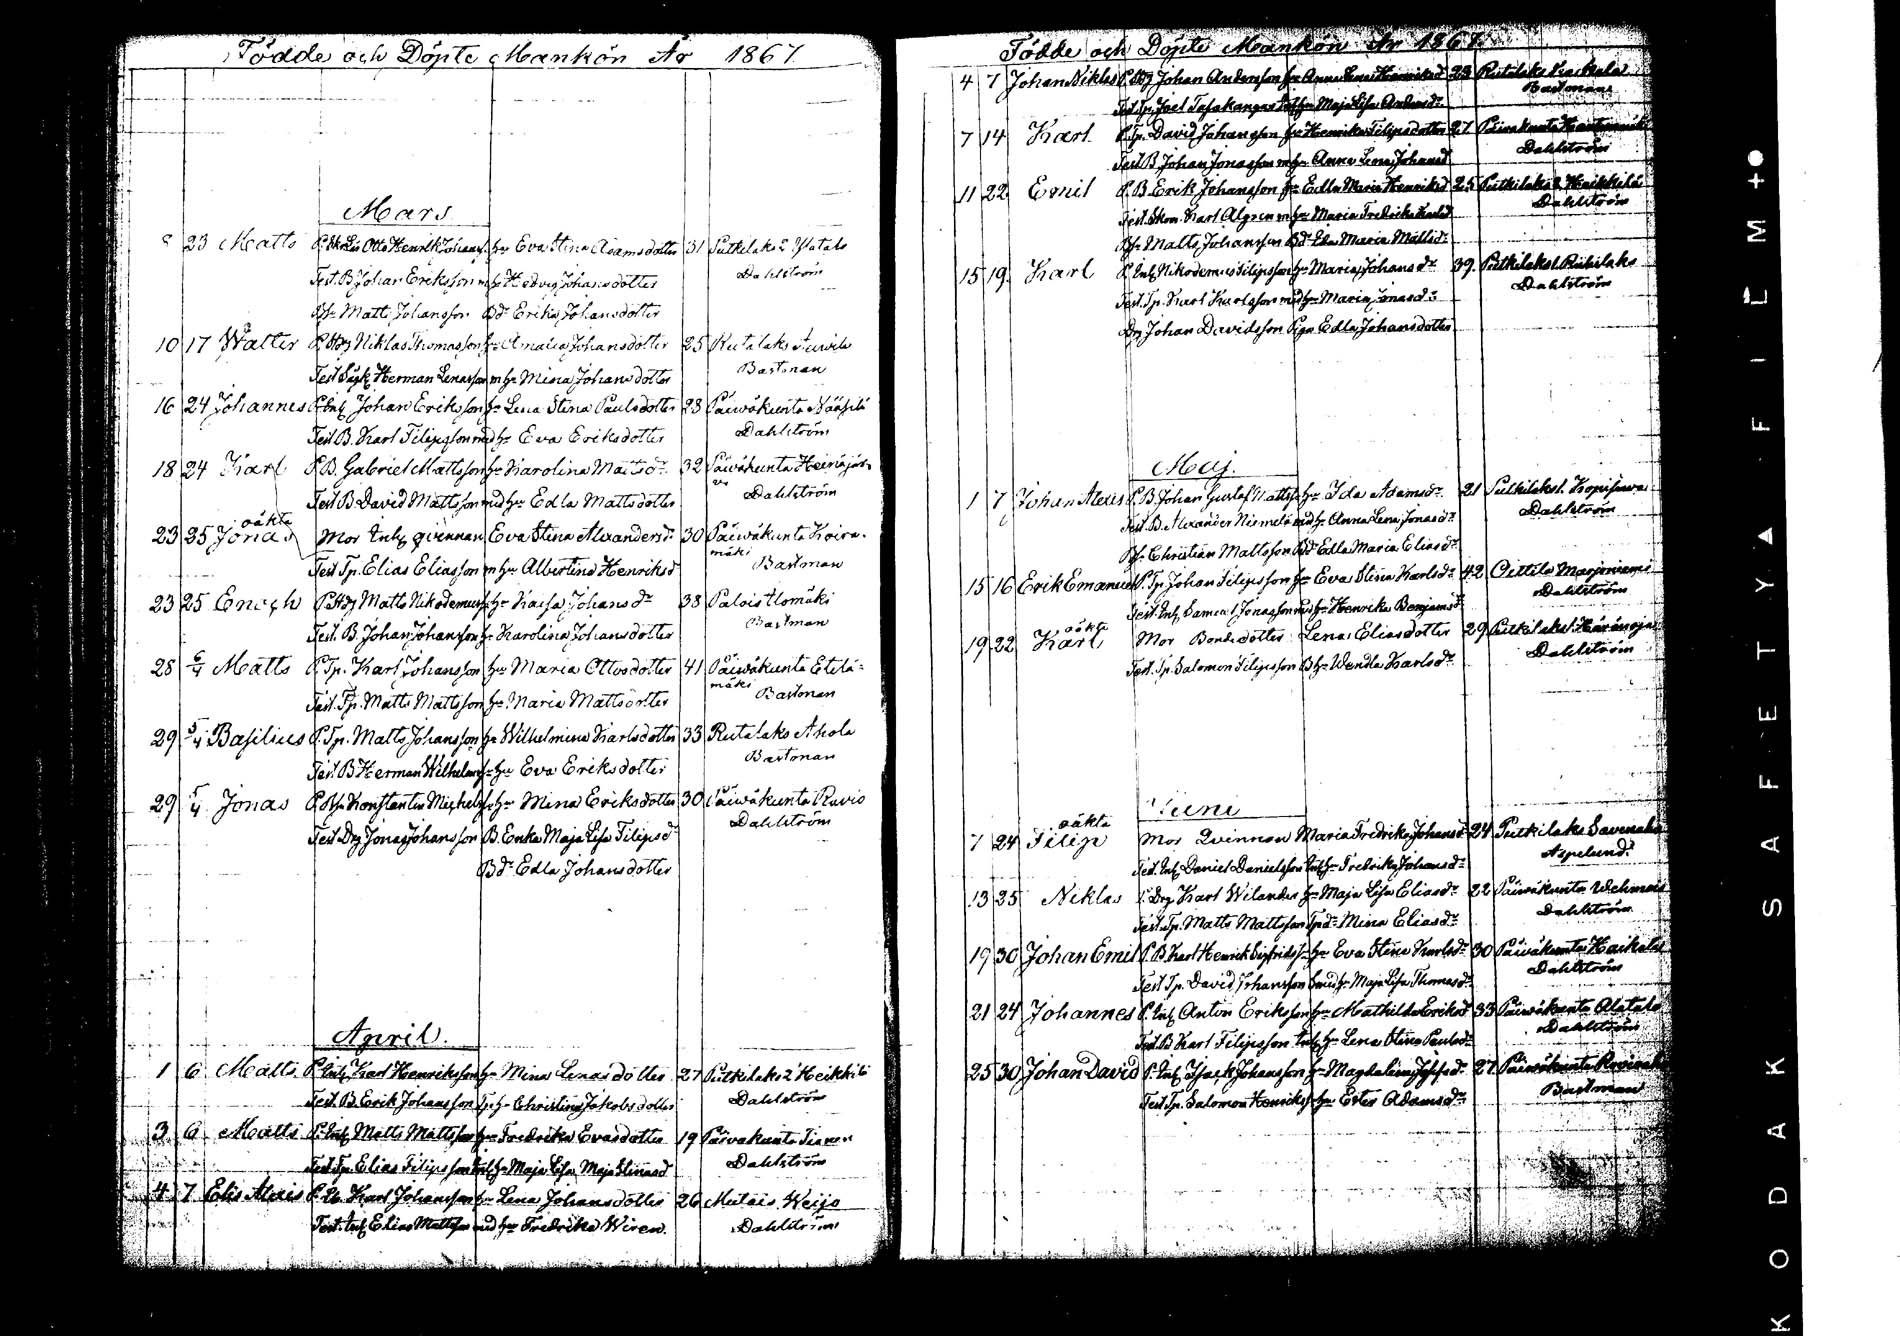 Födde och Döpte Mankön År 1867.
Mars
8 23 Matts Otto Henrik Johans hu Eva Stina Adamsdotter 31 Putkilaks 2 Ylätalo
Test. B. Johan Eriksson m hu Hedvig Johansdotter Dahlström
Matt Johansson Bdr Erika Johansdotter
10 17 Walter P. Niklas Thomasson hu Amalia Johansdotter 25 Rutalaks
Test Herman Lenasson m hu Mina Johansdotter Bastman
16 24 Johannes P. Inh Johan Eriksson hu Lena Stina Paulsdotter 23 Päiwäkunta
Test. B. Karl Filipsson med hu Eva Eriksdotter Dahlström
18 24 Karl P. B. Gabriel Mattsson hu Karolina Mattsdr 32 Päiwäkunta Heinäjär-
vi
Test B. David Mattsson med hu Edla Mattsdotter Dahlström
oäkta
23 25 Jonas Mor Inh qvinnan Eva Stina Alexandersdr 30 Päiwäkunta Koira-
mäki
Test Tp. Elias Eliasson m hu Albertina Henriksd Bastman
23 25 Enoch P. Matts Nikodemus hu Kaisa Johansdr 38 Palois
Test. B. Johan Johansson hu Karolina Johansdotter Bastman
28 6/4 Matts P. Tp. Karl Johansson hu Maria Ottosdotter 41 Päiwäkunta Etelä-
mäki
Test. Tp. Matts Mattsson hu Maria Mattsdotter Bastman
29 5/4 Basilius P. Tp. Matts Johansson hu Wilhelmina Karlsdotter 33 Rutalaks Ahola
Test. B Herman Wilhelms hu Eva Eriksdotter Bastman
29 5/4 Jonas P. Konstantin Michels hu Mina Eriksdotter 30 Päiwäkunta
Test. Drg Jonas Johansson B. Enka Maja Lisa Filipsd Dahlström
Bdr Edla Johansdotter
April.
1 6 Matts P. Inh Karl Henriksson hu Mina Lenasdotter 27 Putkilaks 2 Heikkilä
Test. B. Erik Johansson Tp hu Christina Jakobsdotter Dahlström
3 6 Matts P. Inh Matts Mattsson hu Fredrika Evasdotter 19 Päiwäkunta
Test. Tp. Elias Filipsson Inh hu Maja Lisa Maja Stinasd Dahlström
4 7 Elis Alexis P. Karl Johansson hu Lena Johansdotter 26 Weijo
Test. Inh Elias Mattsson med hu Fredrika Wiren. Dahlström
Födde och Döpte Mankön År 1867.
4 7 Johan Niklas P. Johan Andersson hu Anna Lena Henriksd 23 Rutalaks
Bastman
Test. Tp. Joel hu Maja Lisa Andersdr
7 14 Karl P. Tp. David Johansson hu Henrika Filipsdotter 27 Päiwäkunta
Dahlström
Test. B. Johan Jonasson m hu Anna Lena Johansd
11 22 Emil P. B. Erik Johansson hu Edla Maria Henriksd 25 Putkilaks 2 Heikkilä
Dahlström
Test. Skom. Karl Algren m hu Maria Fredrika Karlsd
Matts Johansson Bdr Eda Maria Mattsdr
15 19 Karl P. Inh Nikodemus Filipsson hu Maria Johansdr 39 Putkilaks 1.
Dahlström
Test. Tp. Karl Karlsson med hu Maria Jonasdr
Drg Johan Davidsson Pigan Edla Johansdotter
Maj.
1 7 Johan Alexis P. B. Johan Gustaf Matts hu Ida Adamsdr 21 Putkilaks 1.
Dahlström
Test. B. Alexander Niemelä med hu Anna Lena Jonasdr
Christian Mattsson Bdr Edla Maria Eliasdr
15 16 Erik Emanuel P. Tp. Johan Filipsson hu Eva Stina Karlsdr 42 Oittila Marjoniemi
Dahlström
Test. Inh Samuel Jonasson med hu Henrika Benjamsdr
oäkta
19 22 Karl Mor Bondedotter Lena Eliasdotter 29 Putkilaks 1. Häränoja
Dahlström
Test. Tp. Salomon Filipsson B hu Wendla Karlsdr
Juni
oäkta
7 24 Filip Mor Qvinnan Maria Fredrika Johansd 24 Putkilaks Savenaho
Aspelund
Test. Inh Daniel Danielsson Inh hu Fredrika Johansdr
13 25 Niklas P. Drg Karl Wilander hu Maja Lisa Eliasdr 22 Päiwäkunta Wehmais
Dahlström
Test. Tp. Matts Mattsson Tpdr Mina Eliasdr
19 30 Johan Emil P. B. Karl Henrik Sigfrids hu Eva Stina Karlsdr 30 Päiwäkunta Haikala
Dahlström
Test Tp. David Johansson med hu Maja Lisa Thomasdr
21 24 Johannes P. Inh Anton Eriksson hu Mathilda Eriksd 33 Päiwäkunta Alatalo
Dahlström
Test. B Karl Filipsson Inh hu Lena Stina Paulsdr
25 30 Johan David P. Inh Isack Johansson hu Magdalena 27 Päiwäkunta
Bastman
Test Tp. Salomon Henriks hu Ester Adamsdr
KODAK SAFETY FILM